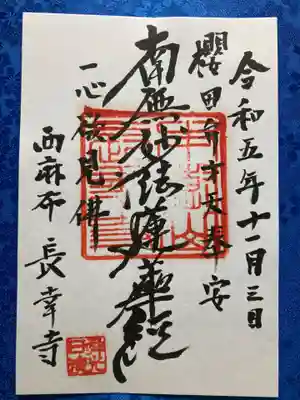 令和五年十一月三日
櫻田弁才天奉安
南無妙法蓮華経
一心欲見佛
西麻布 長幸寺